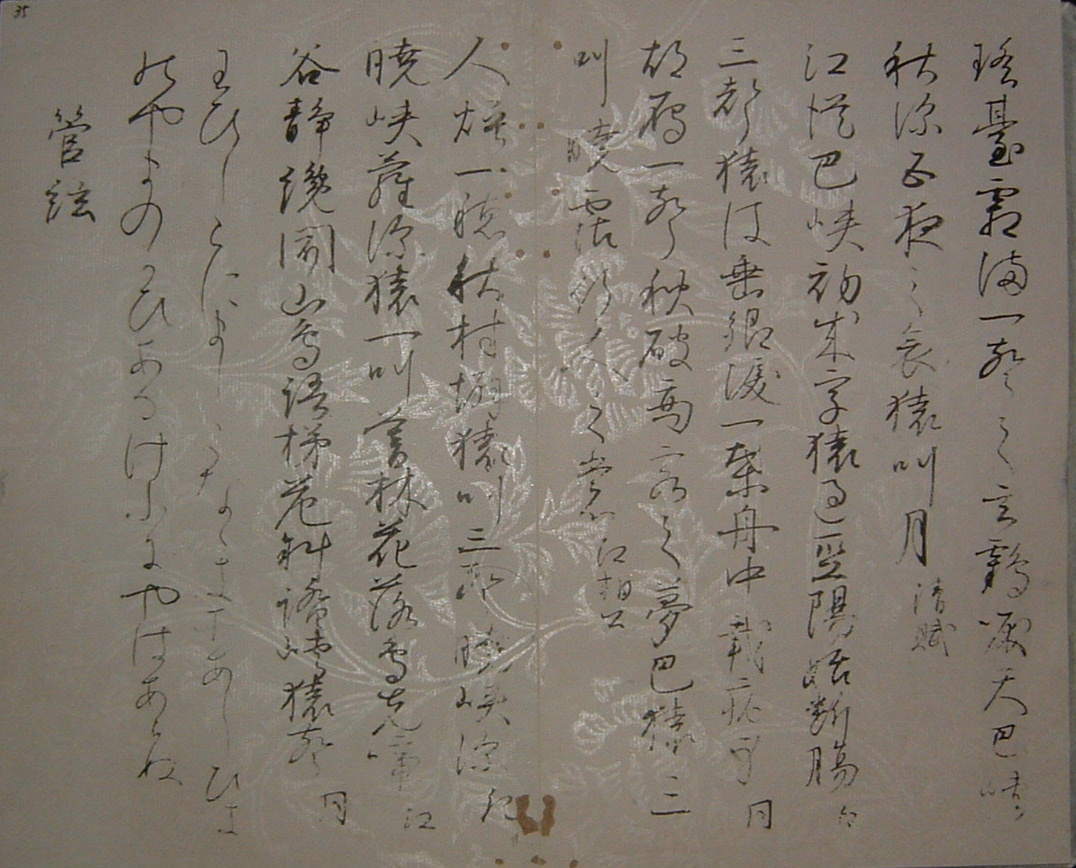 35
瑶臺霜満一声之玄鶴唳天巴峡
秋深五夜之哀猿叫月 清賦
江従巴峡初成字猿過巫陽始断腸 白
三声猿後垂郷涙一葉舟中載病身 同
胡鴈一声秋破商客之夢巴猿三
叫暁霑行人之裳 江相公
人煙一穂秋村僻猿叫三声暁峡深 紀
暁峡蘿深猿一叫暮林花落鳥先啼 江
谷静纔聞山鳥語梯危斜踏峡猿声 同
わひしらにましらなゝきそあしひき
のやまのかひあるけふにやはあらぬ
管絃